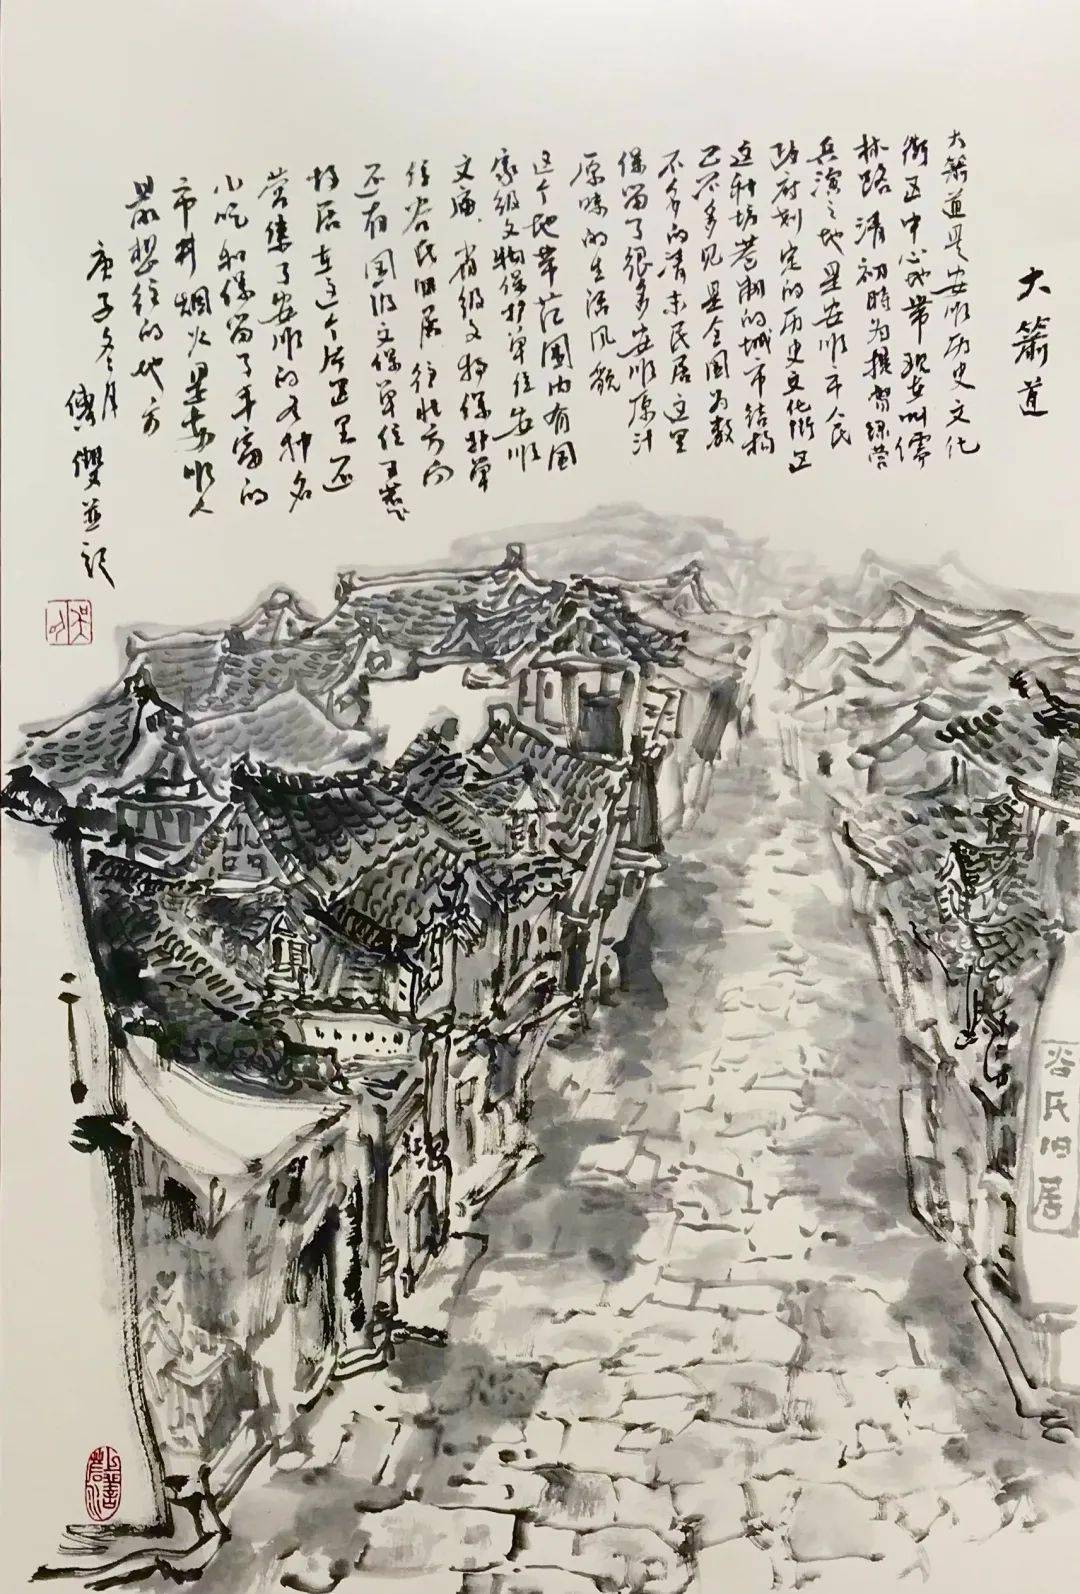 大箫道
大箫道是安顺历史文化
街区中心地带现在叫儒
林路清初時为操習绿营
兵演之地是安顺市人民
政府划定的历史文化街区
这种坊巷制的城市结构
已不多见是全国为数
不多的清末民居这里
保留了很多安顺原汁
原味的生活风貌
这个地带范围内有国
家级文物保护单位安顺
文庙、省级文物保护单
位谷氏旧居往北方向
还有国级文保单位王若飞
故居在这个片区里还
営集了安顺的各种名
小吃和保留了丰富的
市井烟火是安顺人
最想往的地方
庚子冬月
並記
谷氏旧居
上善若水